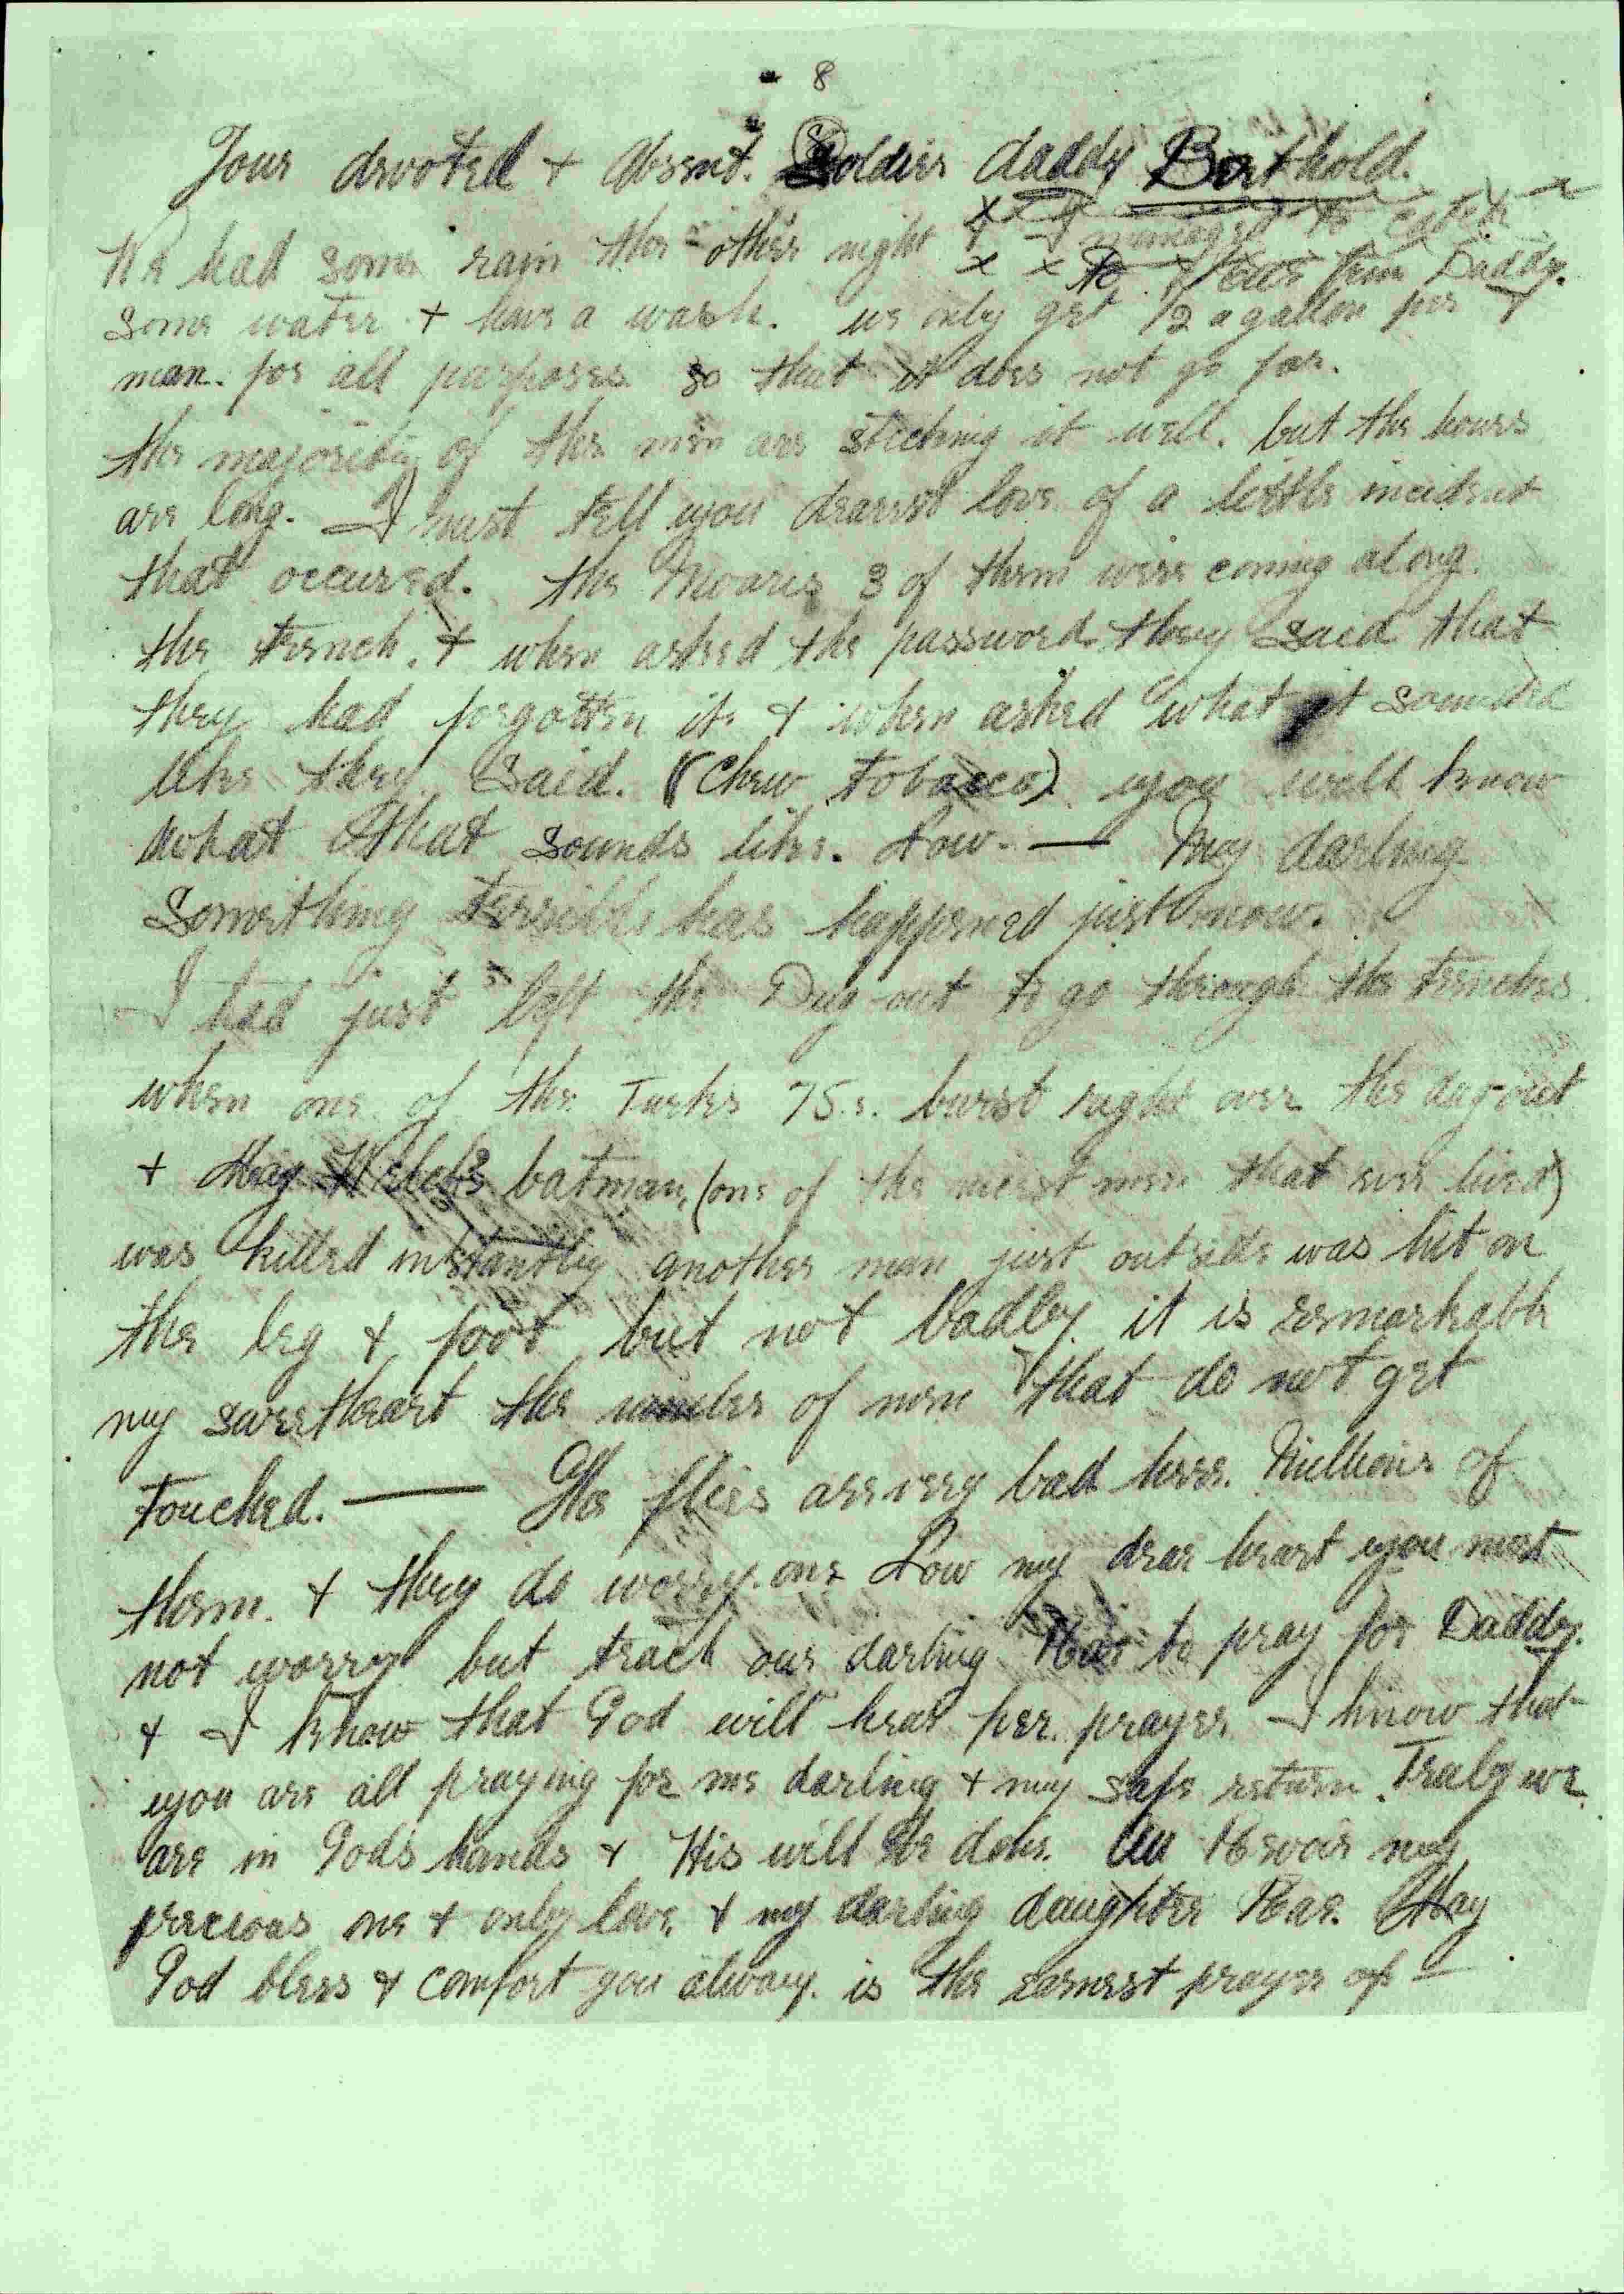 8
Your devoted + Absent. Soldier daddy Berthold.
We had some rain the other night & I managed to catch
x x x x x x to Pear from Daddy.
some water + have a wash. we only get 1/2 a gallon per
man. for all purposes so that it does not go far.
the majority of the men are sticking it well. but the hours
are long. I must tell you dearest love of a little incident
that occured. the Moaris 3 of them were coming along.
the trench. + when asked the password they said that
they had forgotten it. + when asked what it sounded
like they said. (Chew tobacco) you will know
what that sounds like. Now. — My darling
Something terrible has happened just now.
I had just left the Dug-out to go through the trenches
when one of the Turks 75.s. burst right over the dug-out
+ batman, (one of the nicest men that ever lived)
was killed instantly another man just outside was hit on
the leg + foot but not badly. it is remarkable
my sweetheart the number of men that do not get
touched. — The flies are very bad here. Millions of
them. + they do worry one Now my dear heart you must
not worry but teach our darling Rae to pray for Daddy.
+ I know that God will hear her prayer I know that
you are all praying for me darling + my safe return. Truly we
are in Gods hands + His will be done. Au Revoir my
precious one + only love. + my darling daughter Rae. May
God bless + comfort you alway. is the earnest prayer of —